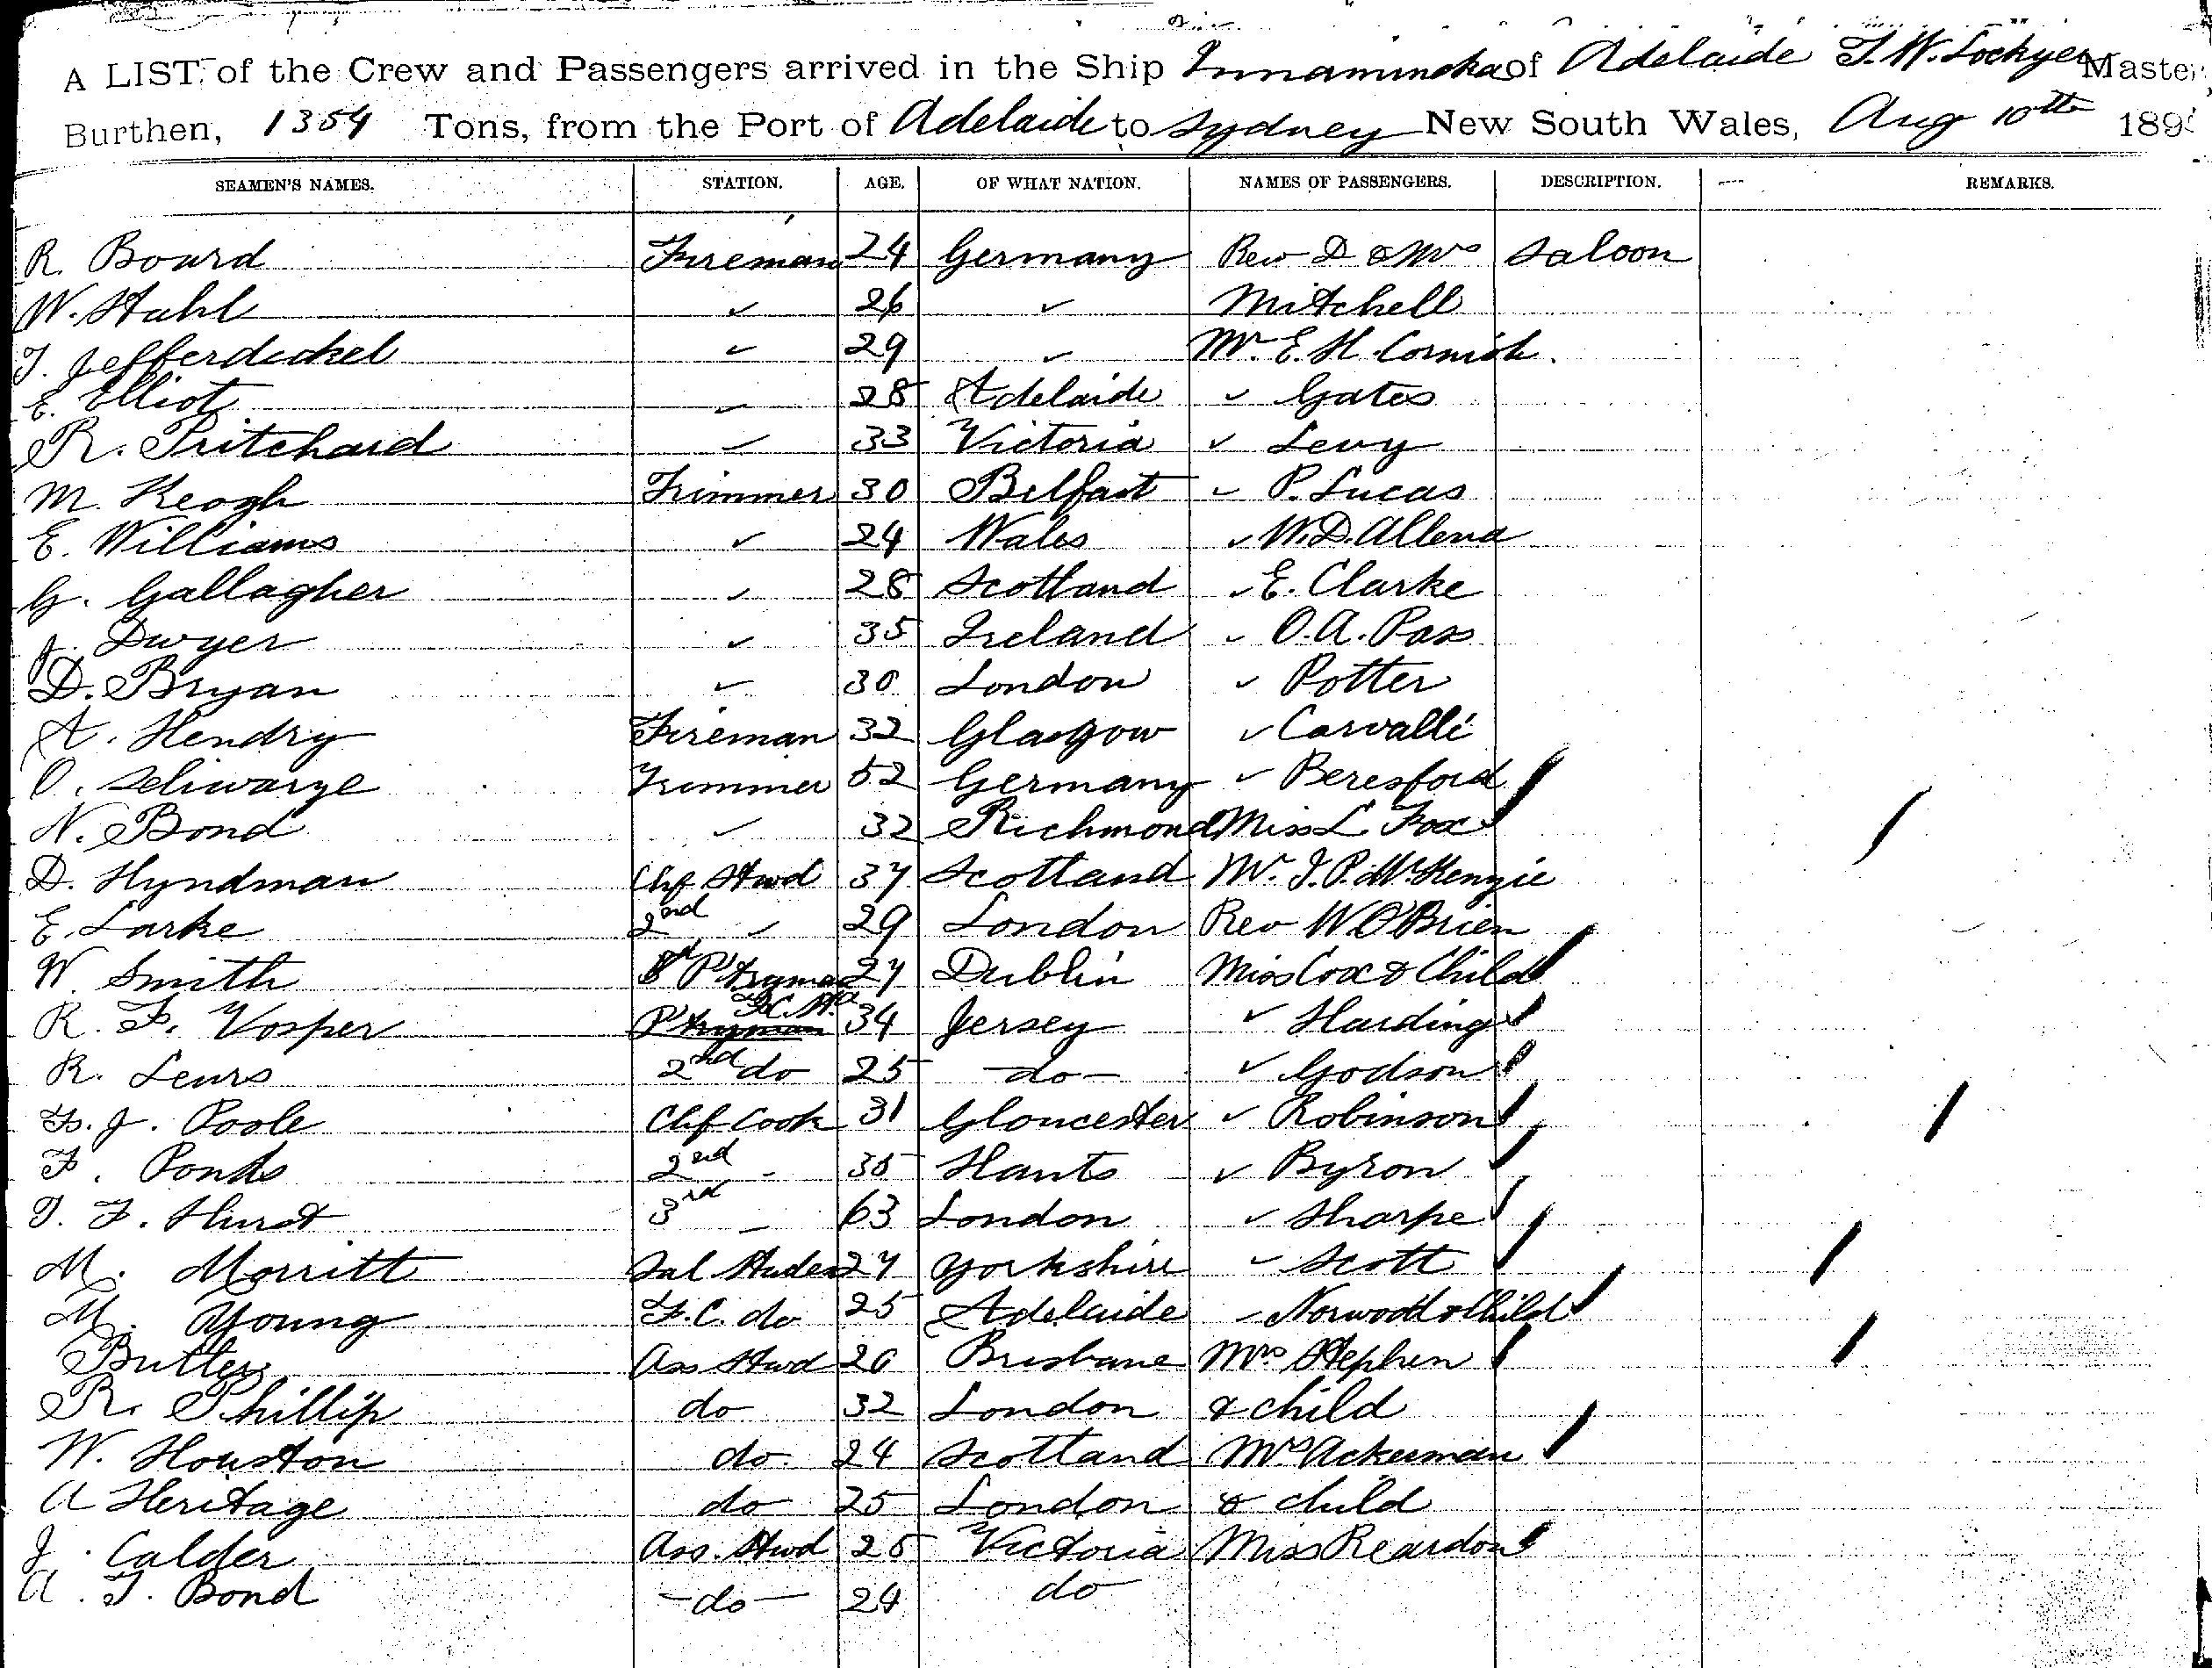 A LIST, of the Crew and Passengers arrived in the Ship Innamincka of Adelaide T. W. Lockyer Master
Burthen, 1354 Tons, from the Port of Adelaide to Sydney New South Wales, Aug 10th 189
SEAMEN'S NAMES. STATION. AGE. OF WHAT NATION. NAMES OF PASSENGERS. DESCRIPTION. REMARKS.
R. Bourd Fireman 24 Germany Rev D & Mrs Saloon
W. Stahl ✓ 26 ✓ Mitchell
T. Jefferdeckel ✓ 29 ✓ Mr. E. H. Cornish.
E. Elliot ✓ 28 Adelaide ✓ Gates
R. Pritchard ✓ 33 Victoria ✓ Levy
M. Keogh Trimmer 30 Belfast ✓ P. Lucas
E. Williams ✓ 24 Wales ✓ W. D. Allend
G. Gallagher ✓ 28 Scotland ✓ E. Clarke
J. Dwyer ✓ 35 Ireland ✓ O. A. Pass
D. Bryan ✓ 30 London ✓ Potter
A. Hendry Fireman 32 Glasgow ✓ Carvalli
O. Schwarze Trimmer 52 Germany ✓ Beresford
N. Bond ✓ 32 Richmond Miss L Fox
D. Hyndman Chf Stwd 37 Scotland Mr. J. P. McKenzie
E. Larke 2nd ✓ 29 London Rev W O'Brien
W. Smith P'tryman 27 Dublin Miss Cox & Child
R. F. Vosper P'tryman 34 Jersey ✓ Harding
R. Leurs 2nd do 25 do ✓ Godson
F. J. Poole Chf Cook 31 Gloucester ✓ Robinson
F. Ponds 2nd - 35 Hants ✓ Byron
T. F. Hurst 3rd - 63 London ✓ Sharpe
M. Morritt Sal Studes 27 Yorkshire ✓ Scott
M. Young F.C. do 25 Adelaide ✓ Norwood & Child
Butler Ass Stwd 20 Brisbane Mrs Stephen
R. Phillip do 32 London & child
W. Houston do 24 Scotland Mrs Ackerman
A Heritage do 25 London & child
J. Calder Ass. Stwd 25 Victoria Miss Reardon
A. T. Bond do 24 do